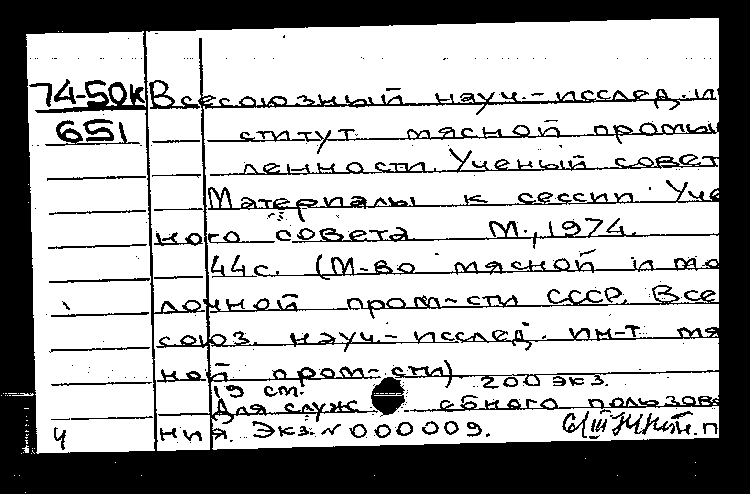 74-50к Всесоюзный науч.-исслед. ин
651 ститут мясной промыш
ленности. Ученый совет
Материалы к сессии Уче
ного совета М., 1974.
44с. (М-во мясной и мо
лочной пром-сти СССР. Все
союз. науч.-исслед. ин-т мя
ной пром-сти)
19 см. 200 экз.
Для служебного пользова
4 ния. Экз. № 000009.